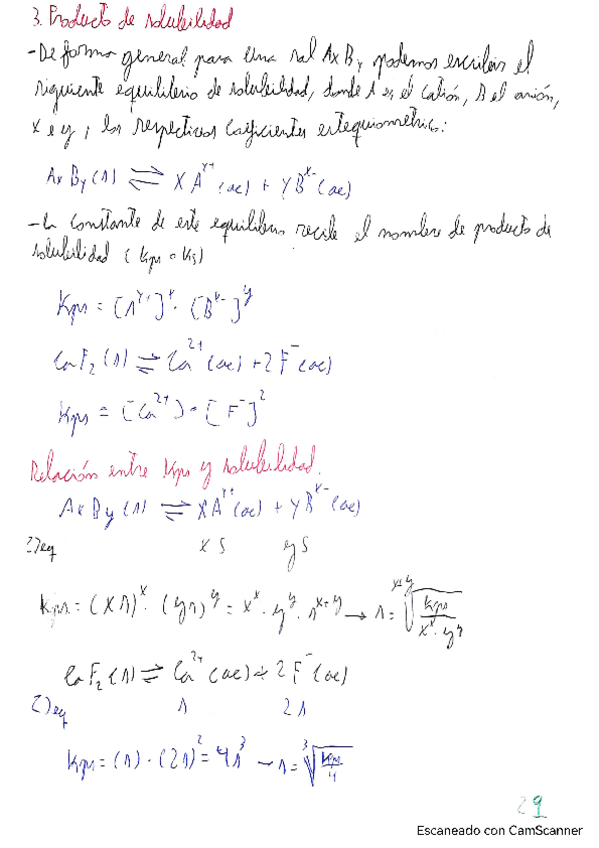 3. Producto de solubilidad
-De forma general para una sal AxBy podemos escribir el
siguiente equilibrio de solubilidad, donde A es el catión, B el anión,
x e y, los respectivos coeficientes estequiométricos:
AxBy (s) ⇌ XA^{y+} (ac) + YB^{x-} (ac)
-La constante de este equilibrio recibe el nombre de producto de
solubilidad (Kps o Ks)
Kps = [A^{y+}]^x · [B^{x-}]^y
CaF₂ (s) ⇌ Ca²⁺ (ac) + 2F⁻ (ac)
Kps = [Ca²⁺] · [F⁻]²
Relación entre Kps y solubilidad.
AxBy (s) ⇌ XA^{y+} (ac) + YB^{x-} (ac)
C)eq xS yS
Kps = (xs)^x · (ys)^y = x^x · y^y · s^{x+y} → s = ^{x+y}√(Kps / x^x · y^y)
CaF₂ (s) ⇌ Ca²⁺ (ac) + 2F⁻ (ac)
C)eq s 2s
Kps = (s) · (2s)² = 4s³ → s = ∛(Kps / 4)
29
Escaneado con CamScanner